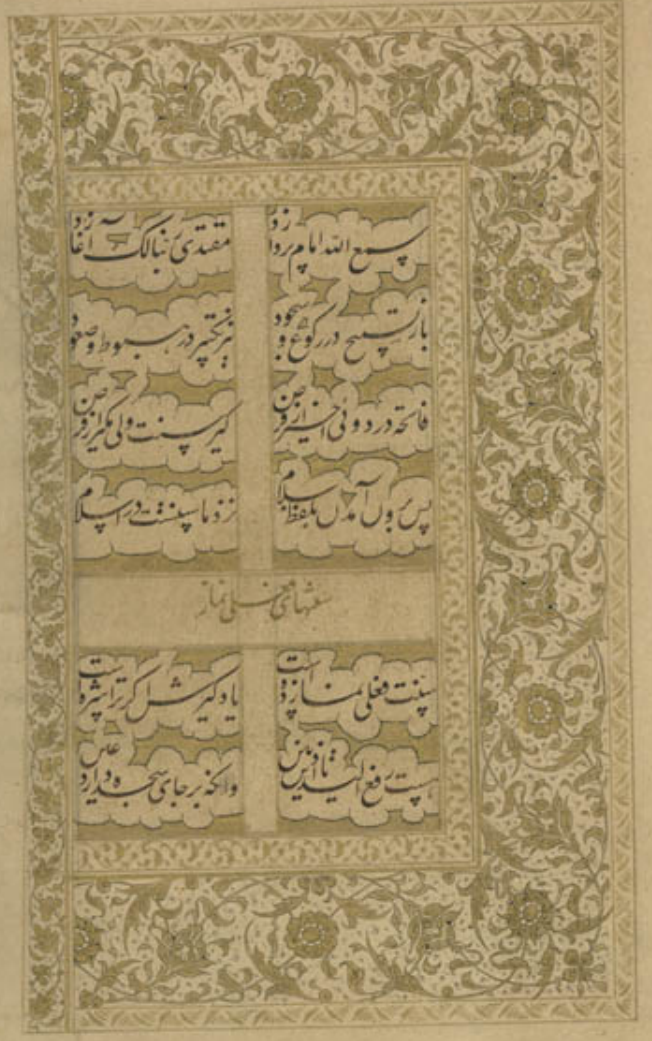 سمع الله امام بردازد مقتدی ربنا لک آغازد
باز تسبیح در رکوع و سجود نیز تکبیر در هبوط و صعود
فاتحه در دوئی اخیر از فرض گیر سنت ولی مگیر از فرض
پس برون آمدن بلفظ سلام نزد ما سنتست در اسلام
سنتهای فعلی نماز
سنت فعلی نماز ده است یاد گیرش اگر ترا شره است
هست رفع الیدین تا اذنین وانکه بر جای سجده دارد عین